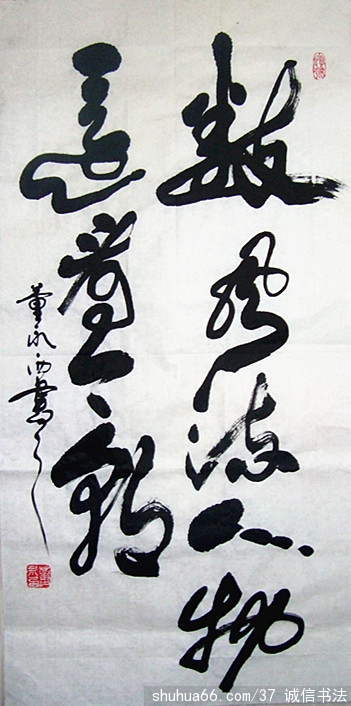 数风流人物
还看今朝
董永西书
shuhua66.com/37 诚信书法